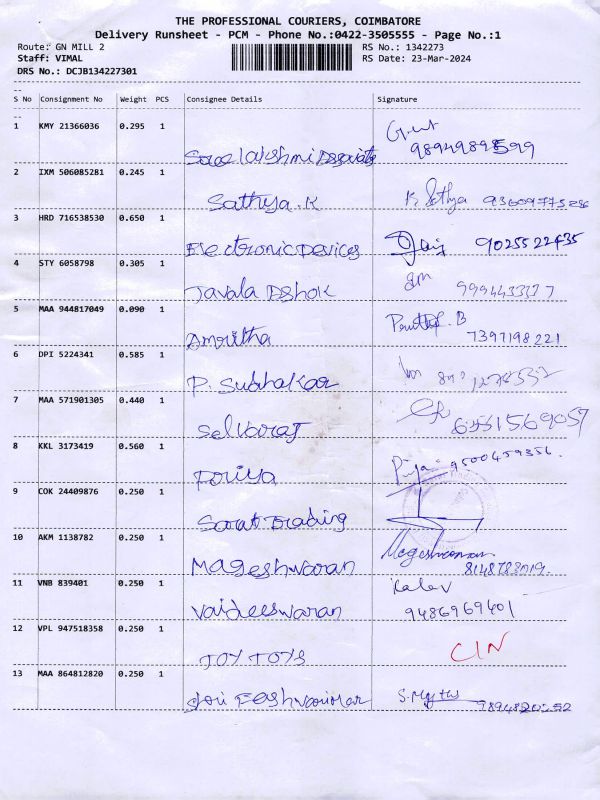 THE PROFESSIONAL COURIERS, COIMBATORE
Delivery Runsheet - PCM - Phone No.:0422-3505555 - Page No.:1
Route: GN MILL 2 RS No.: 1342273
Staff: VIMAL RS Date: 23-Mar-2024
DRS No.: DCJB134227301
--
S No Consignment No Weight PCS Consignee Details Signature
--
1 KMY 21366036 0.295 1
2 IXM 506085281 0.245 1
Sathya.K K. Sathya
3 HRD 716538530 0.650 1
Electronic Devices 9025522435
4 STY 6058798 0.305 1
Javala Ashok 9994433377
5 MAA 944817049 0.090 1
Amritha 7397198221
6 DPI 5224341 0.585 1
P. Subhakar
7 MAA 571901305 0.440 1
Selvaraj
8 KKL 3173419 0.560 1
Poriya 9500459356.
9 COK 24409876 0.250 1
Sarat Trading
10 AKM 1138782 0.250 1
Mageshwaran Mageshwaran
11 VNB 839401 0.250 1
Vaideeswaran 9486969401
12 VPL 947518358 0.250 1
JOY TOYS CIN
13 MAA 864812820 0.250 1